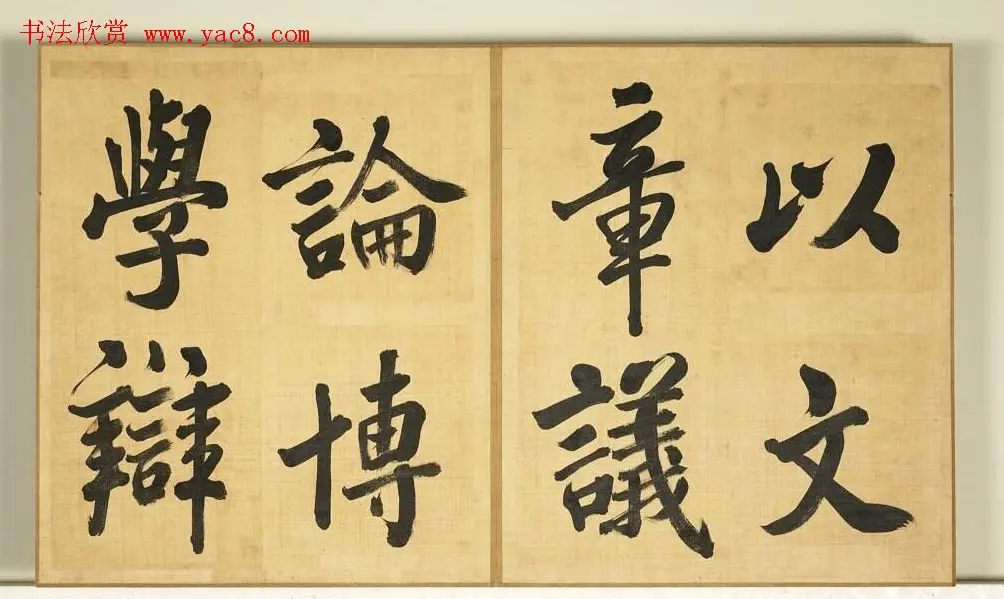 书法欣赏 www.yac8.com
以文
章議
論博
學辯